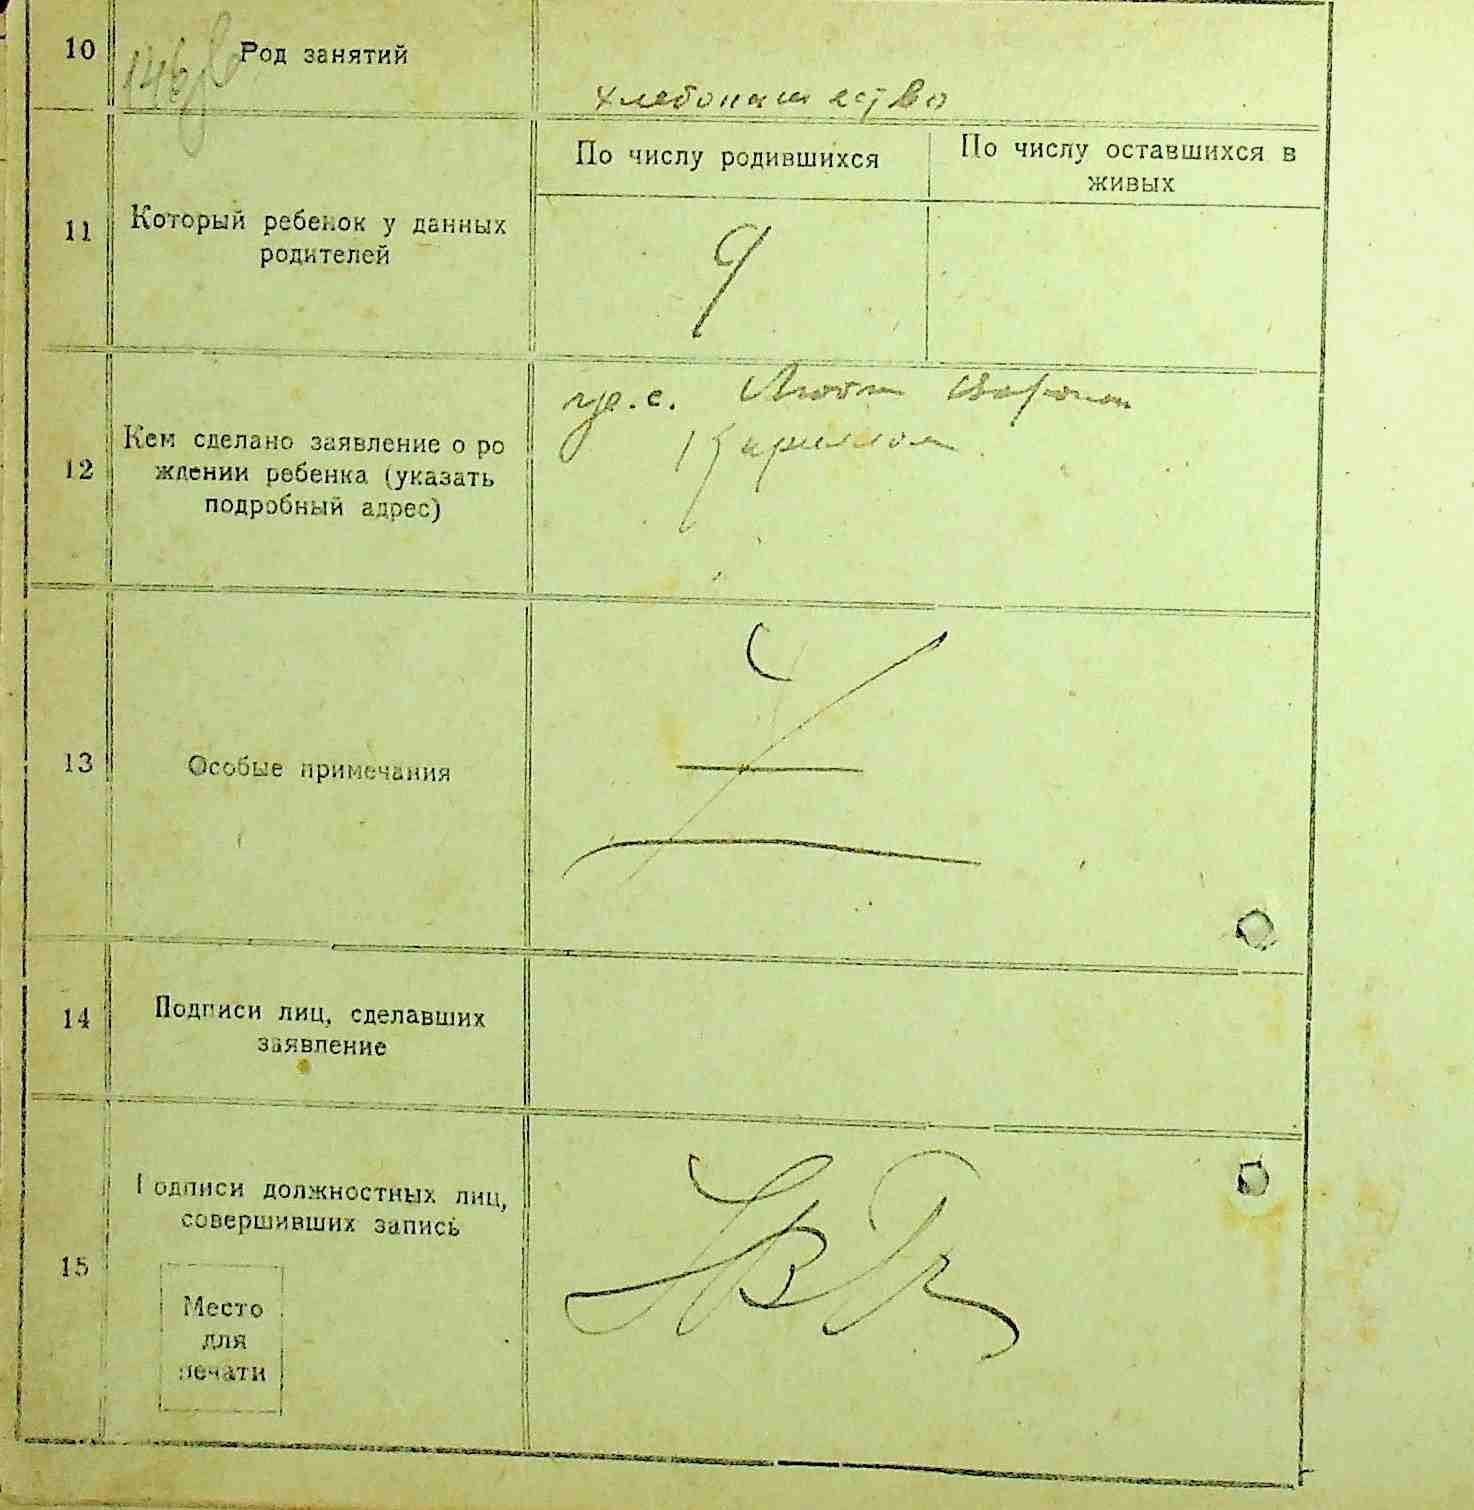 10 Род занятий
хлебопашество
11 Который ребенок у данных
родителей
По числу родившихся
По числу оставшихся в
живых
9
12 Кем сделано заявление о ро
ждении ребенка (указать
подробный адрес)
13 Особые примечания
14 Подписи лиц, сделавших
заявление
15 Подписи должностных лиц,
совершивших запись
Место
для
печати